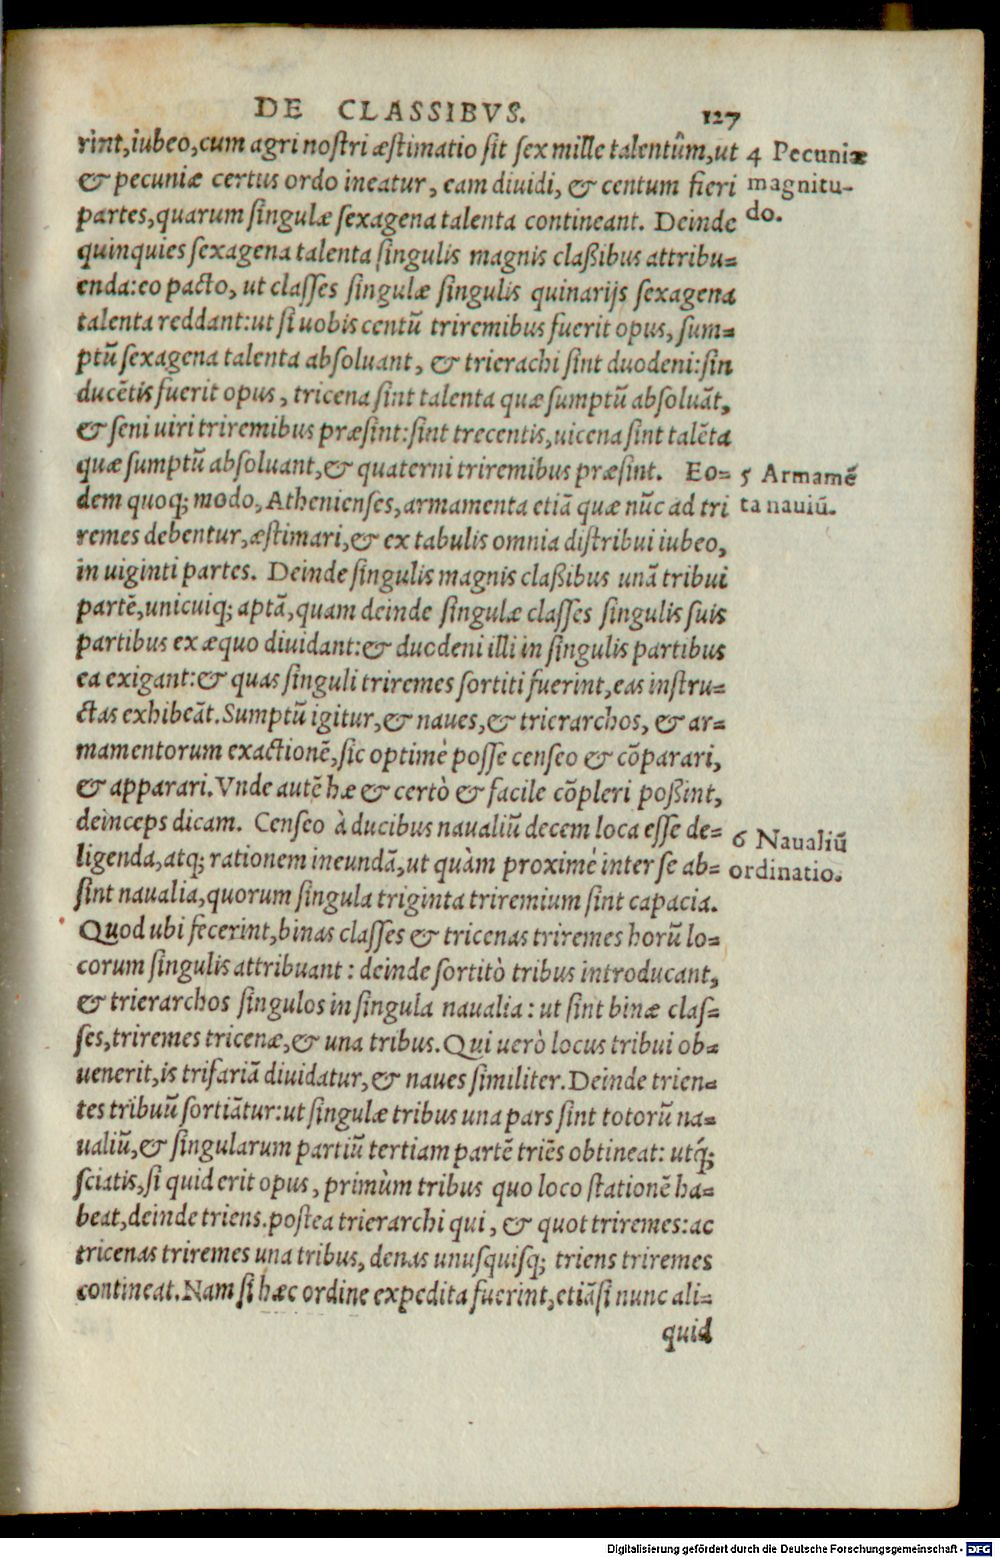 DE CLASSIBVS. 127
rint, iubeo, cum agri nostri æstimatio sit sex mille talentûm, ut
& pecuniæ certus ordo ineatur, eam diuidi, & centum fieri
partes, quarum singulæ sexagena talenta contineant. Deinde
quinquies sexagena talenta singulis magnis claßibus attribu-
enda: eo pacto, ut classes singulæ singulis quinarijs sexagena
talenta reddant: ut si uobis centũ triremibus fuerit opus, sum-
ptũ sexagena talenta absoluant, & trierachi sint duodeni: sin
ducẽtis fuerit opus, tricena sint talenta quæ sumptũ absoluãt,
& seni uiri triremibus præsint: sint trecentis, uicena sint talẽta
quæ sumptũ absoluant, & quaterni triremibus præsint. Eo-
dem quoq; modo, Athenienses, armamenta etiã quæ nũc ad tri
remes debentur, æstimari, & ex tabulis omnia distribui iubeo,
in uiginti partes. Deinde singulis magnis claßibus unã tribui
partẽ, unicuiq; aptã, quam deinde singulæ classes singulis suis
partibus ex æquo diuidant: & duodeni illi in singulis partibus
ea exigant: & quas singuli triremes sortiti fuerint, eas instru-
ctas exhibeãt. Sumptũ igitur, & naues, & trierarchos, & ar-
mamentorum exactionẽ, sic optimè posse censeo & cõparari,
& apparari. Vnde autẽ hæ & certò & facile cõpleri poßint,
deinceps dicam. Censeo à ducibus naualiũ decem loca esse de-
ligenda, atq; rationem ineundã, ut quàm proximè inter se ab-
sint naualia, quorum singula triginta triremium sint capacia.
Quod ubi fecerint, binas classes & tricenas triremes horũ lo-
corum singulis attribuant: deinde sortitò tribus introducant,
& trierarchos singulos in singula naualia: ut sint binæ clas-
ses, triremes tricenæ, & una tribus. Qui uerò locus tribui ob-
uenerit, is trifariã diuidatur, & naues similiter. Deinde trien-
tes tribuũ sortiãtur: ut singulæ tribus una pars sint totorũ na-
ualiũ, & singularum partiũ tertiam partẽ triẽs obtineat: utq́;
sciatis, si quid erit opus, primùm tribus quo loco stationẽ ha-
beat, deinde triens. postea trierarchi qui, & quot triremes: ac
tricenas triremes una tribus, denas unusquisq; triens triremes
contineat. Nam si hæc ordine expedita fuerint, etiãsi nunc ali-
quid
4 Pecuniæ
magnitu-
do.
5 Armamẽ
ta nauiũ.
6 Naualiũ
ordinatio.
Digitalisierung gefördert durch die Deutsche Forschungsgemeinschaft - DFG